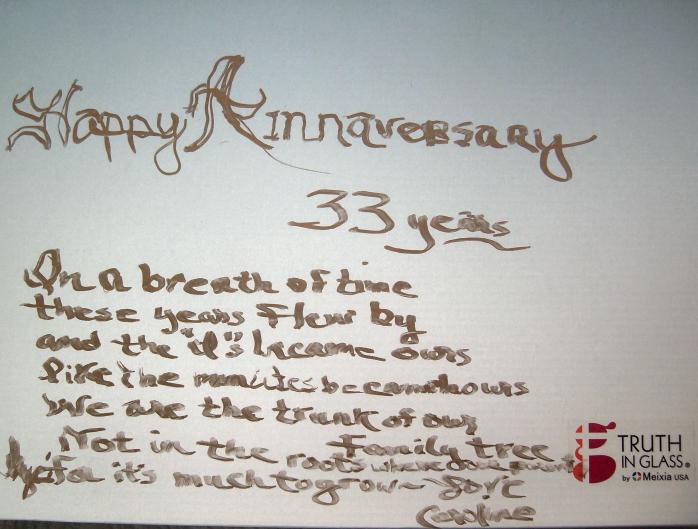 Happy Ainnaversary
33 years
In a breath of time
these years Flew by
and the "I"s became ours
like the minutes became hours
We are the trunk of our
Family tree
Not in the roots where
it's much to grow
Caroline
TRUTH
IN GLASS.
by Meixia USA